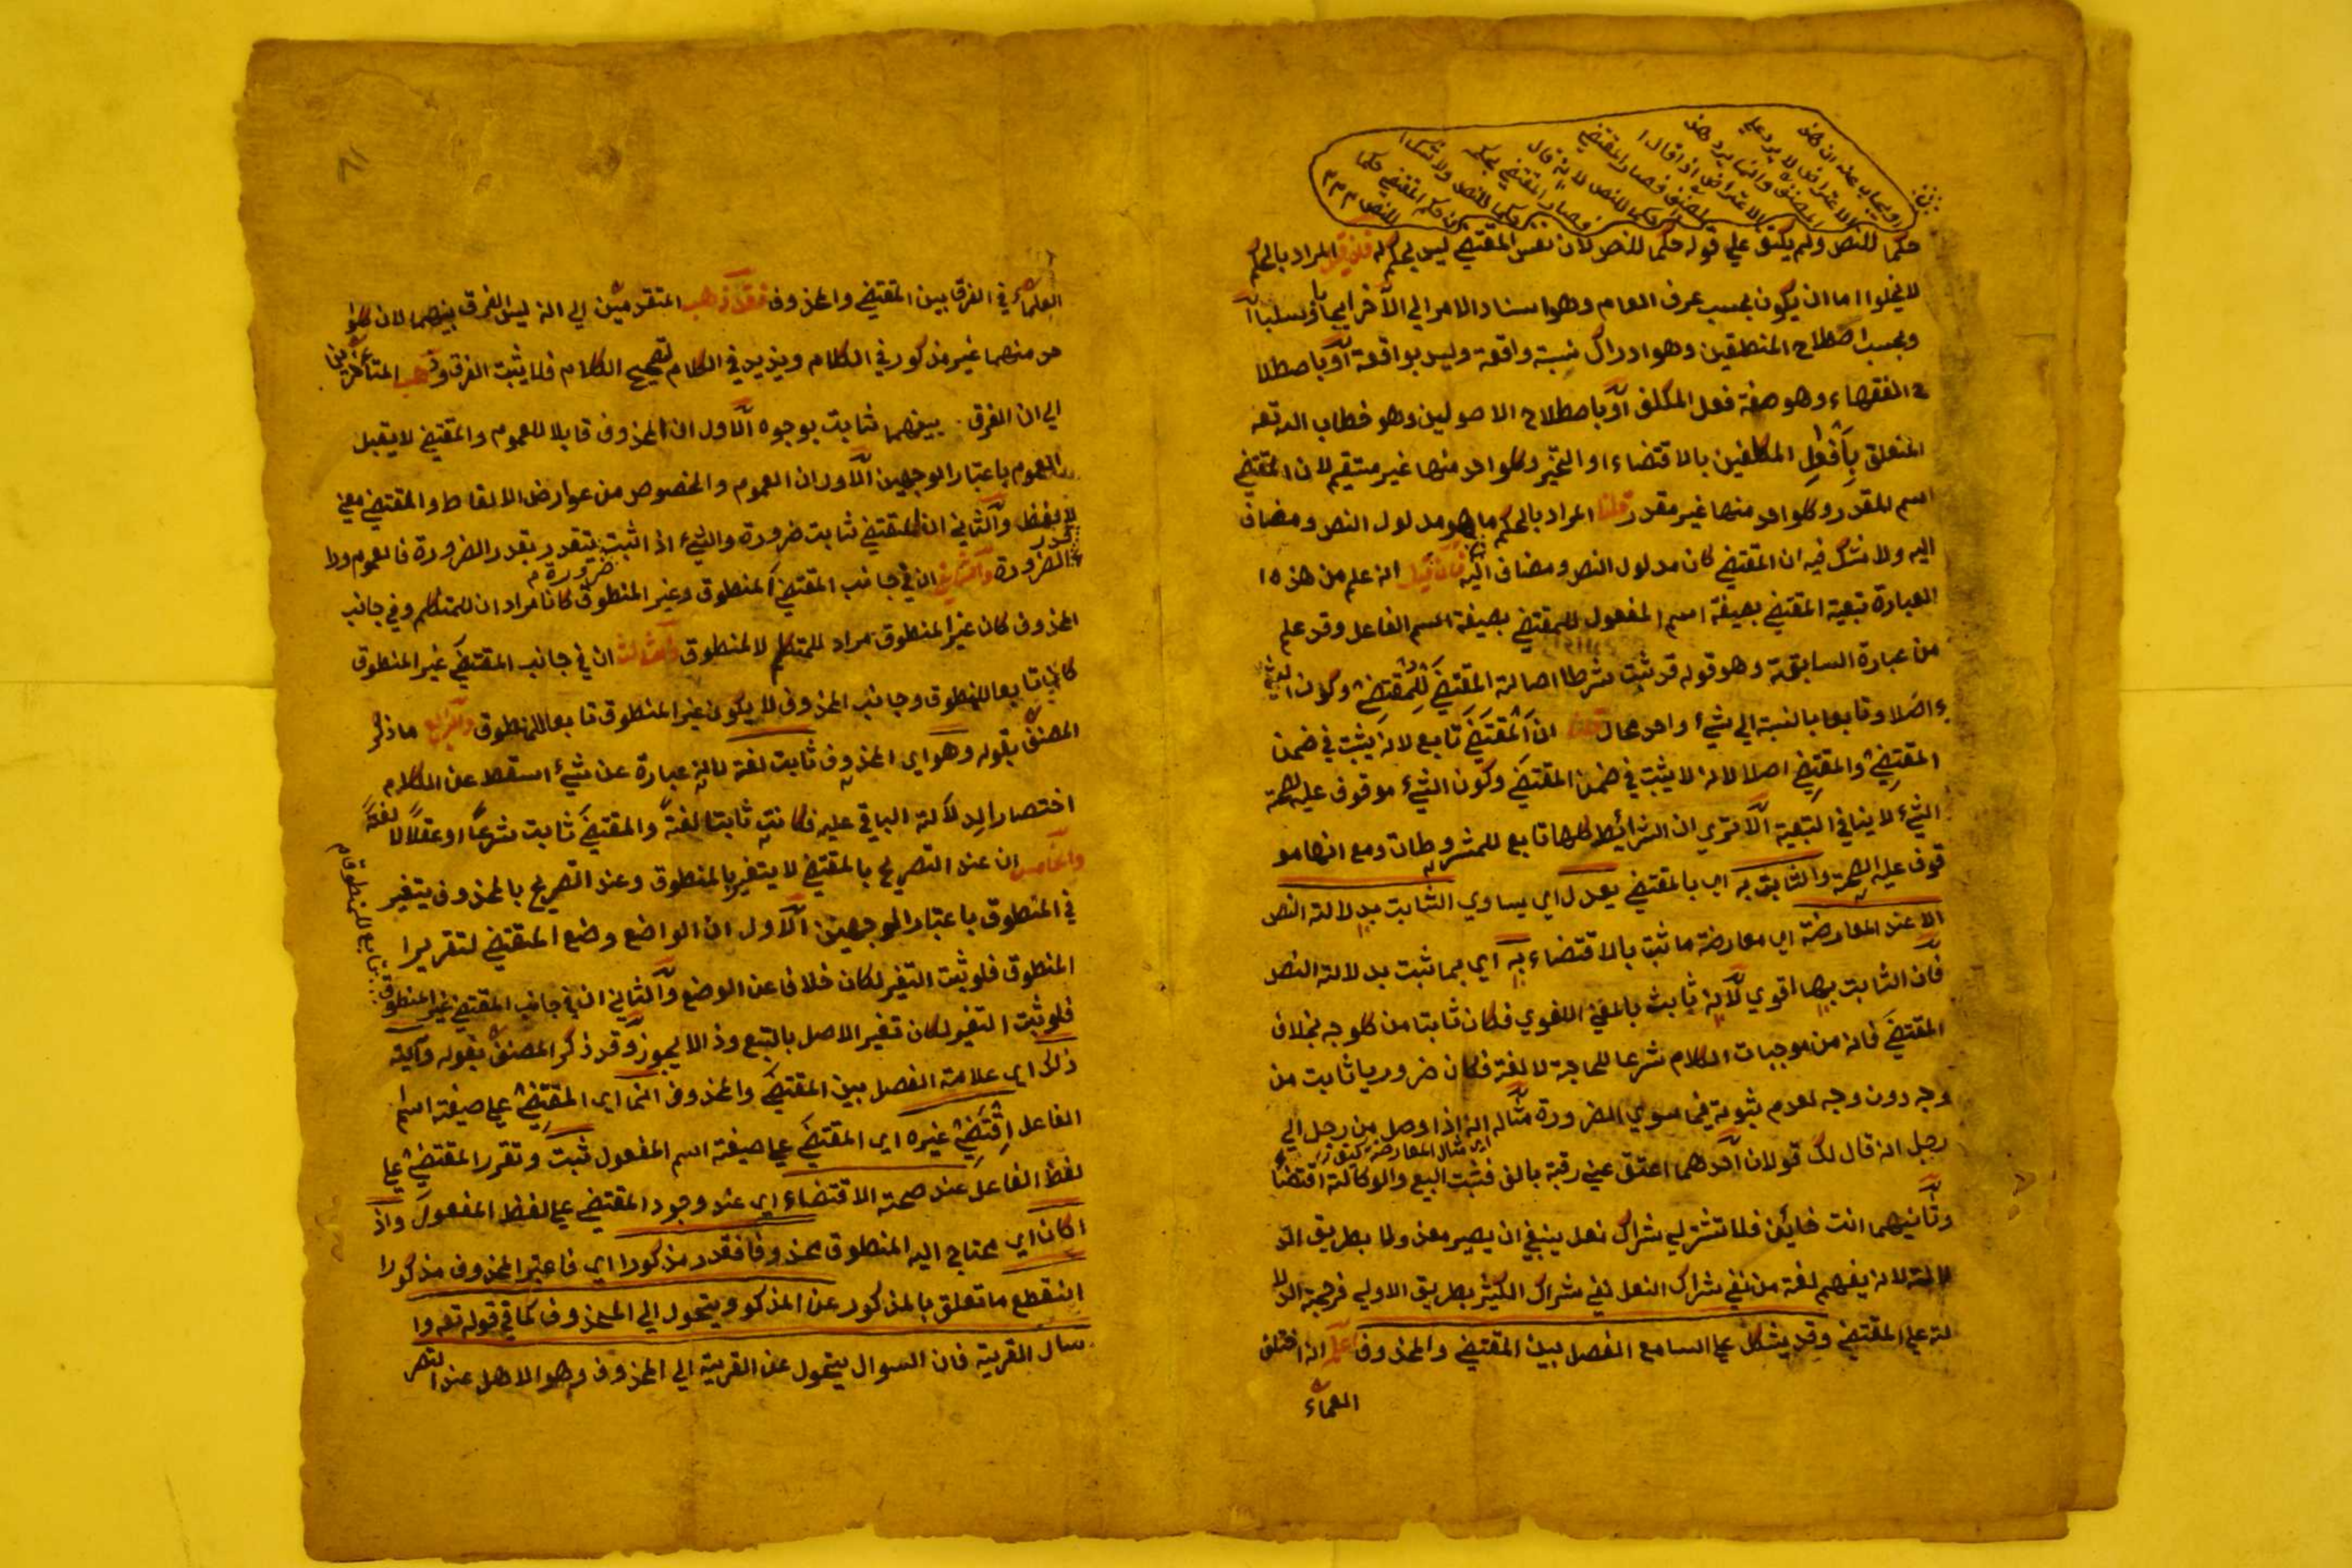 ويجاب عنه ان هذا
الاعتراض لا يرد علي
المصنف وانما يرد هذا
الاعتراض اذا قال
المصنف فصار المقتضي
حكما للنص لانه قال
فصار المقتضي بحكمه
حكما للنص ولا شك ا
ن حكم المقتضي حكما
للنص
حكما للنص ولم يكتف علي قوله حكما للنص لان نفس المقتضي ليس بحكم له فان قيل المراد بالحكم
لا يخلوا اما ان يكون بحسب عرف العام وهو اسناد الامر الي الآخر ايجابا او سلبا ا
وبحسب اصطلاح المنطقين وهو ادراك نسبة واقعة وليس بواقعة او باصطلا
ح الفقهاء وهو صفة فعل المكلف او باصطلاح الاصولين وهو خطاب الله تعه
المتعلق بافعل المكلفين بالاقتضاء او التخير وكلواحد منها غير مستقيم لان المقتضي
اسم المقدر وكلواحد منها غير مقدر قلنا المراد بالحكم ما هو مدلول النص ومضاف
اليه ولا شك فيه ان المقتضي كان مدلول النص ومضاف اليه فان قيل انه علم من هذه ا
العبارة تبعية المقتضي بصيغة اسم المفعول للمقتضي بصيغة اسم الفاعل وقد علم
من عبارة السابقة وهو قوله قد ثبت شرطا اصالة المقتضي للمقتضي وكون الشي
ء اصلا وتابعا بالنسبة الي شيء واحد محال قلنا ان المقتضي تابع لانه يثبت في ضمن
المقتضي والمقتضي اصلا لانه لا يثبت في ضمن المقتضي وكون الشيء موقوف عليه لصحة
الشيء لا ينافي التبعية الا تري ان الشرائط كلها تابع للمشروطات ومع انها مو
قوف عليه الصحة والثابت به اي بالمقتضي يعدل اي يساوي الثابت بدلالة النص
الا عند المعارضة اي معارضة ما ثبت بالاقتضاء به اي بما ثبت بدلالة النص
فان الثابت بها اقوي لانه ثابت بالمعني اللغوي فكان ثابتا من كلوجه بخلاف
المقتضي فانه من موجبات الكلام شرعا للحاجة لا لغة فكان ضروريا ثابت من
وجه دون وجه لعدم ثبوته فيما سوي الضرورة مثاله انه اذا وصل من رجل الي
اي مثال المعارضة
رجل انه قال لك قولان احدهما اعتق عني رقبة بالف فثبت البيع والوكالة اقتضا
وثانيهما انت خائن فلا تشتر لي شراك نعل ينبغي ان يصير معزولا بطريق الد
لالة لانه يفهم لغة من نفي شراك النعل نفي شراك الكثير بطريق الاولي فرجحة الدلا
لة علي المقتضي وقد يشكل علي السامع الفصل بين المقتضي والمحذوف اعلم انه اختلف
العلماء
العلماء في الفرق بين المقتضي والمحذوف فقد ذهب المتقدمين الي انه ليس الفرق بينهما لان كلوا
حد منهما غير مذكور في الكلام ويزيد في الكلام لتصحيح الكلام فلا يثبت الفرق وذهب المتأخرين
الي ان الفرق بينهما ثابت بوجوه الاول ان المحذوف قابلا للعموم والمقتضي لا يقبل
العموم باعتبار الوجهين الاول ان العموم والخصوص من عوارض الالفاظ والمقتضي معني
لا لفظ والثاني ان المقتضي ثابت ضرورة والشيء اذا ثبت ضرورة يتقدر بقدر الضرورة فالعموم ورا
الضرورة والثاني ان في جانب المقتضي المنطوق وغير المنطوق كانا مرادان للمتكلم وفي جانب
المحذوف كان غير المنطوق مراد للمتكلم لا المنطوق والثالث ان في جانب المقتضي غير المنطوق
كان تابعا للمنطوق وجانب المحذوف لا يكون غير المنطوق تابعا للمنطوق والرابع ما ذكر
المصنف بقوله وهو اي المحذوف ثابت لغة لانه عبارة عن شيء اسقط عن الكلام
اختصارا لدلالة الباقي عليه فكانت ثابتا لغة والمقتضي ثابت شرعا او عقلا لا لغة
والخامس ان عند التصريح بالمقتضي لا يتغير بالمنطوق وعند التصريح بالمحذوف يتغير
في المنطوق باعتبار الوجهين الاول ان الواضع وضع المقتضي لتقريرا
المنطوق فلو ثبت التغير لكان خلافا عن الوضع والثاني ان في جانب المقتضي غير المنطوق
تابع للمنطوق
فلو ثبت التغير لكان تغير الاصل بالتبع وذا لا يجوز وقد ذكر المصنف بقوله وآية
ذلك اي علامة الفصل بين المقتضي والمحذوف انما اي المقتضي علي صيغة اسم
الفاعل اقتضي غيره اي المقتضي علي صيغة اسم المفعول ثبت وتقرر المقتضي علي
لفظ الفاعل عند صحة الاقتضاء اي عند وجود المقتضي علي لفظ المفعول واذ
اكان اي محتاج اليه المنطوق محذوفا فقدر مذكورا اي فاعتبر المحذوف مذكورا
انقطع ما تعلق بالمذكور عن المذكور ويتحول الي المحذوف كما في قوله تعه وا
سأل القرية فان السوال يتحول عن القرية الي المحذوف وهو الاهل عند التصر